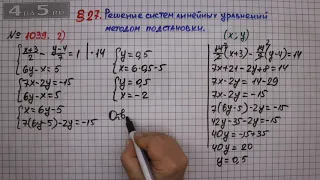 4 на 5
§27. Решение систем линейных уравнений
методом подстановки.
№ 1039. 2)
{(x+3)/2 - (y-4)/7 = 1 | ·14
{6y-x=5
{7x-2y=-15
{6y-x=5
{x=6y-5
{7(6y-5)-2y=-15
{y=0,5
{x=6·0,5-5
{y=0,5
{x=-2
(x; y)
7x+21-2y+8=14
7x-2y+29=14
7x-2y=14-29
7x-2y=-15
7(6y-5)-2y=-15
42y-35-2y=-15
40y=-15+35
40y=20
y=0,5